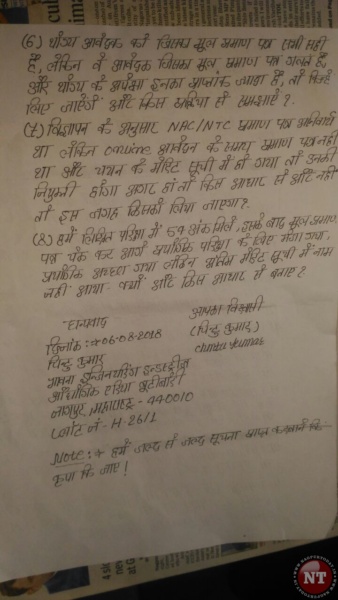 (6) योग्य आवेदक को जिसका मूल प्रमाण पत्र सभी सही
हैं, लेकिन वे आवेदक जिसका मूल प्रमाण पत्र गलत हैं,
और योग्य के अपेक्षा इनका प्राप्तांक ज्यादा हैं, तो किसे
लिए जाएंगे और किस प्रक्रिया से समझाएं ?
(7) विज्ञापन के अनुसार NAC/NTC प्रमाण पत्र अनिवार्य
था लेकिन online आवेदन के समय प्रमाण पत्र नहीं
था और चयन के मेरिट सूची में हो गया तो उनकी
नियुक्ती होगा अगर हां तो किस आधार से और नहीं
तो इस जगह किसको लिया जाएगा ?
(8) हमें लिखित परिक्षा में 59 अंक मिले, इसके बाद मूल प्रमाण
पत्र चेक कर आगे प्रयोगिक परिक्षा के लिए भेजा गया,
प्रयोगिक अच्छा गया लेकिन अंतिम मेरिट सूची में नाम
नही आया क्यों और किस आधार से बनाए ?
धन्यवाद
आपका विश्वासी
दिनांक :→ 06-08-2018
(चिन्टु कुमार)
चिन्टु कुमार
chintu kumar
भावना इन्जिनयरिंग इन्डस्ट्रीज
औद्योगिक एरिया बुटीबोरी
नागपुर, महाराष्ट्र - 440010
प्लोट नं - H-26/1
Note :→ हमें जल्द से जल्द सूचना प्राप्त करवाने कि
कृपा कि जाए !
NT